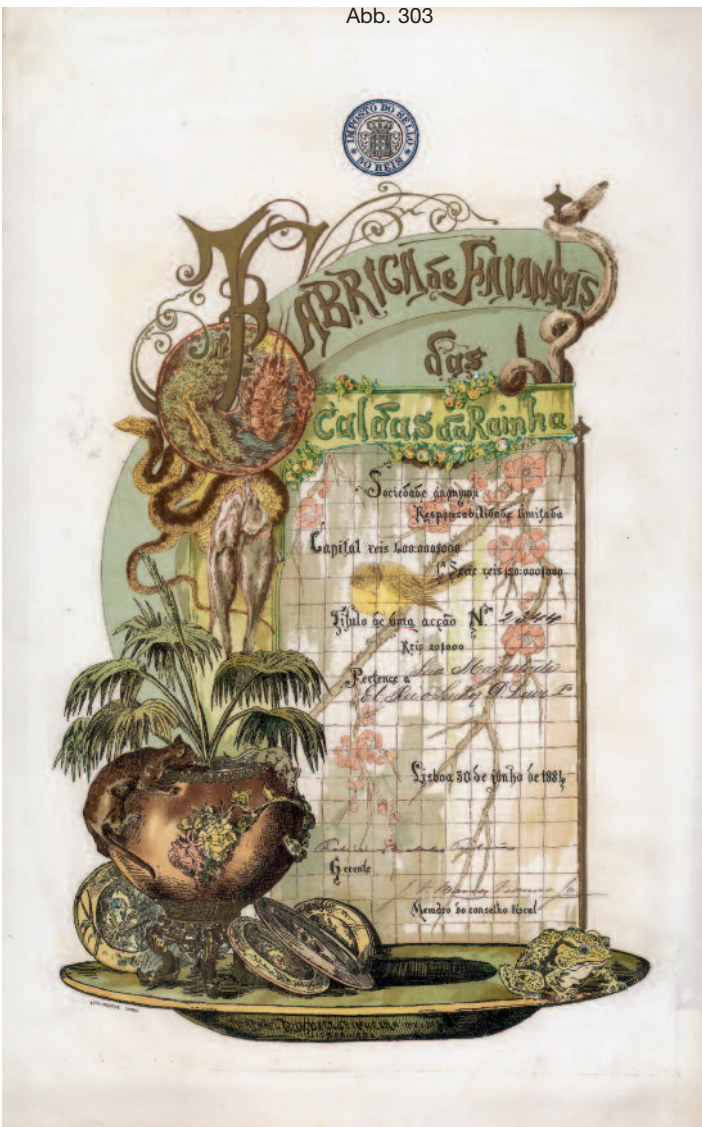 Abb. 303
IMPOSTO DO SELLO
REIS
FABRICA de FAIANÇAS
das
Caldas da Rainha
Sociedade anonyma
Responsabilidade limitada
Capital reis
1ª Serie reis
Titulo de uma acção Nº 2344
Reis 20$000
Pertence a Sua Magestade
El Rei D. Luiz 1º
Lisboa 30 de junho de 1884
Gerente
Membro do conselho fiscal